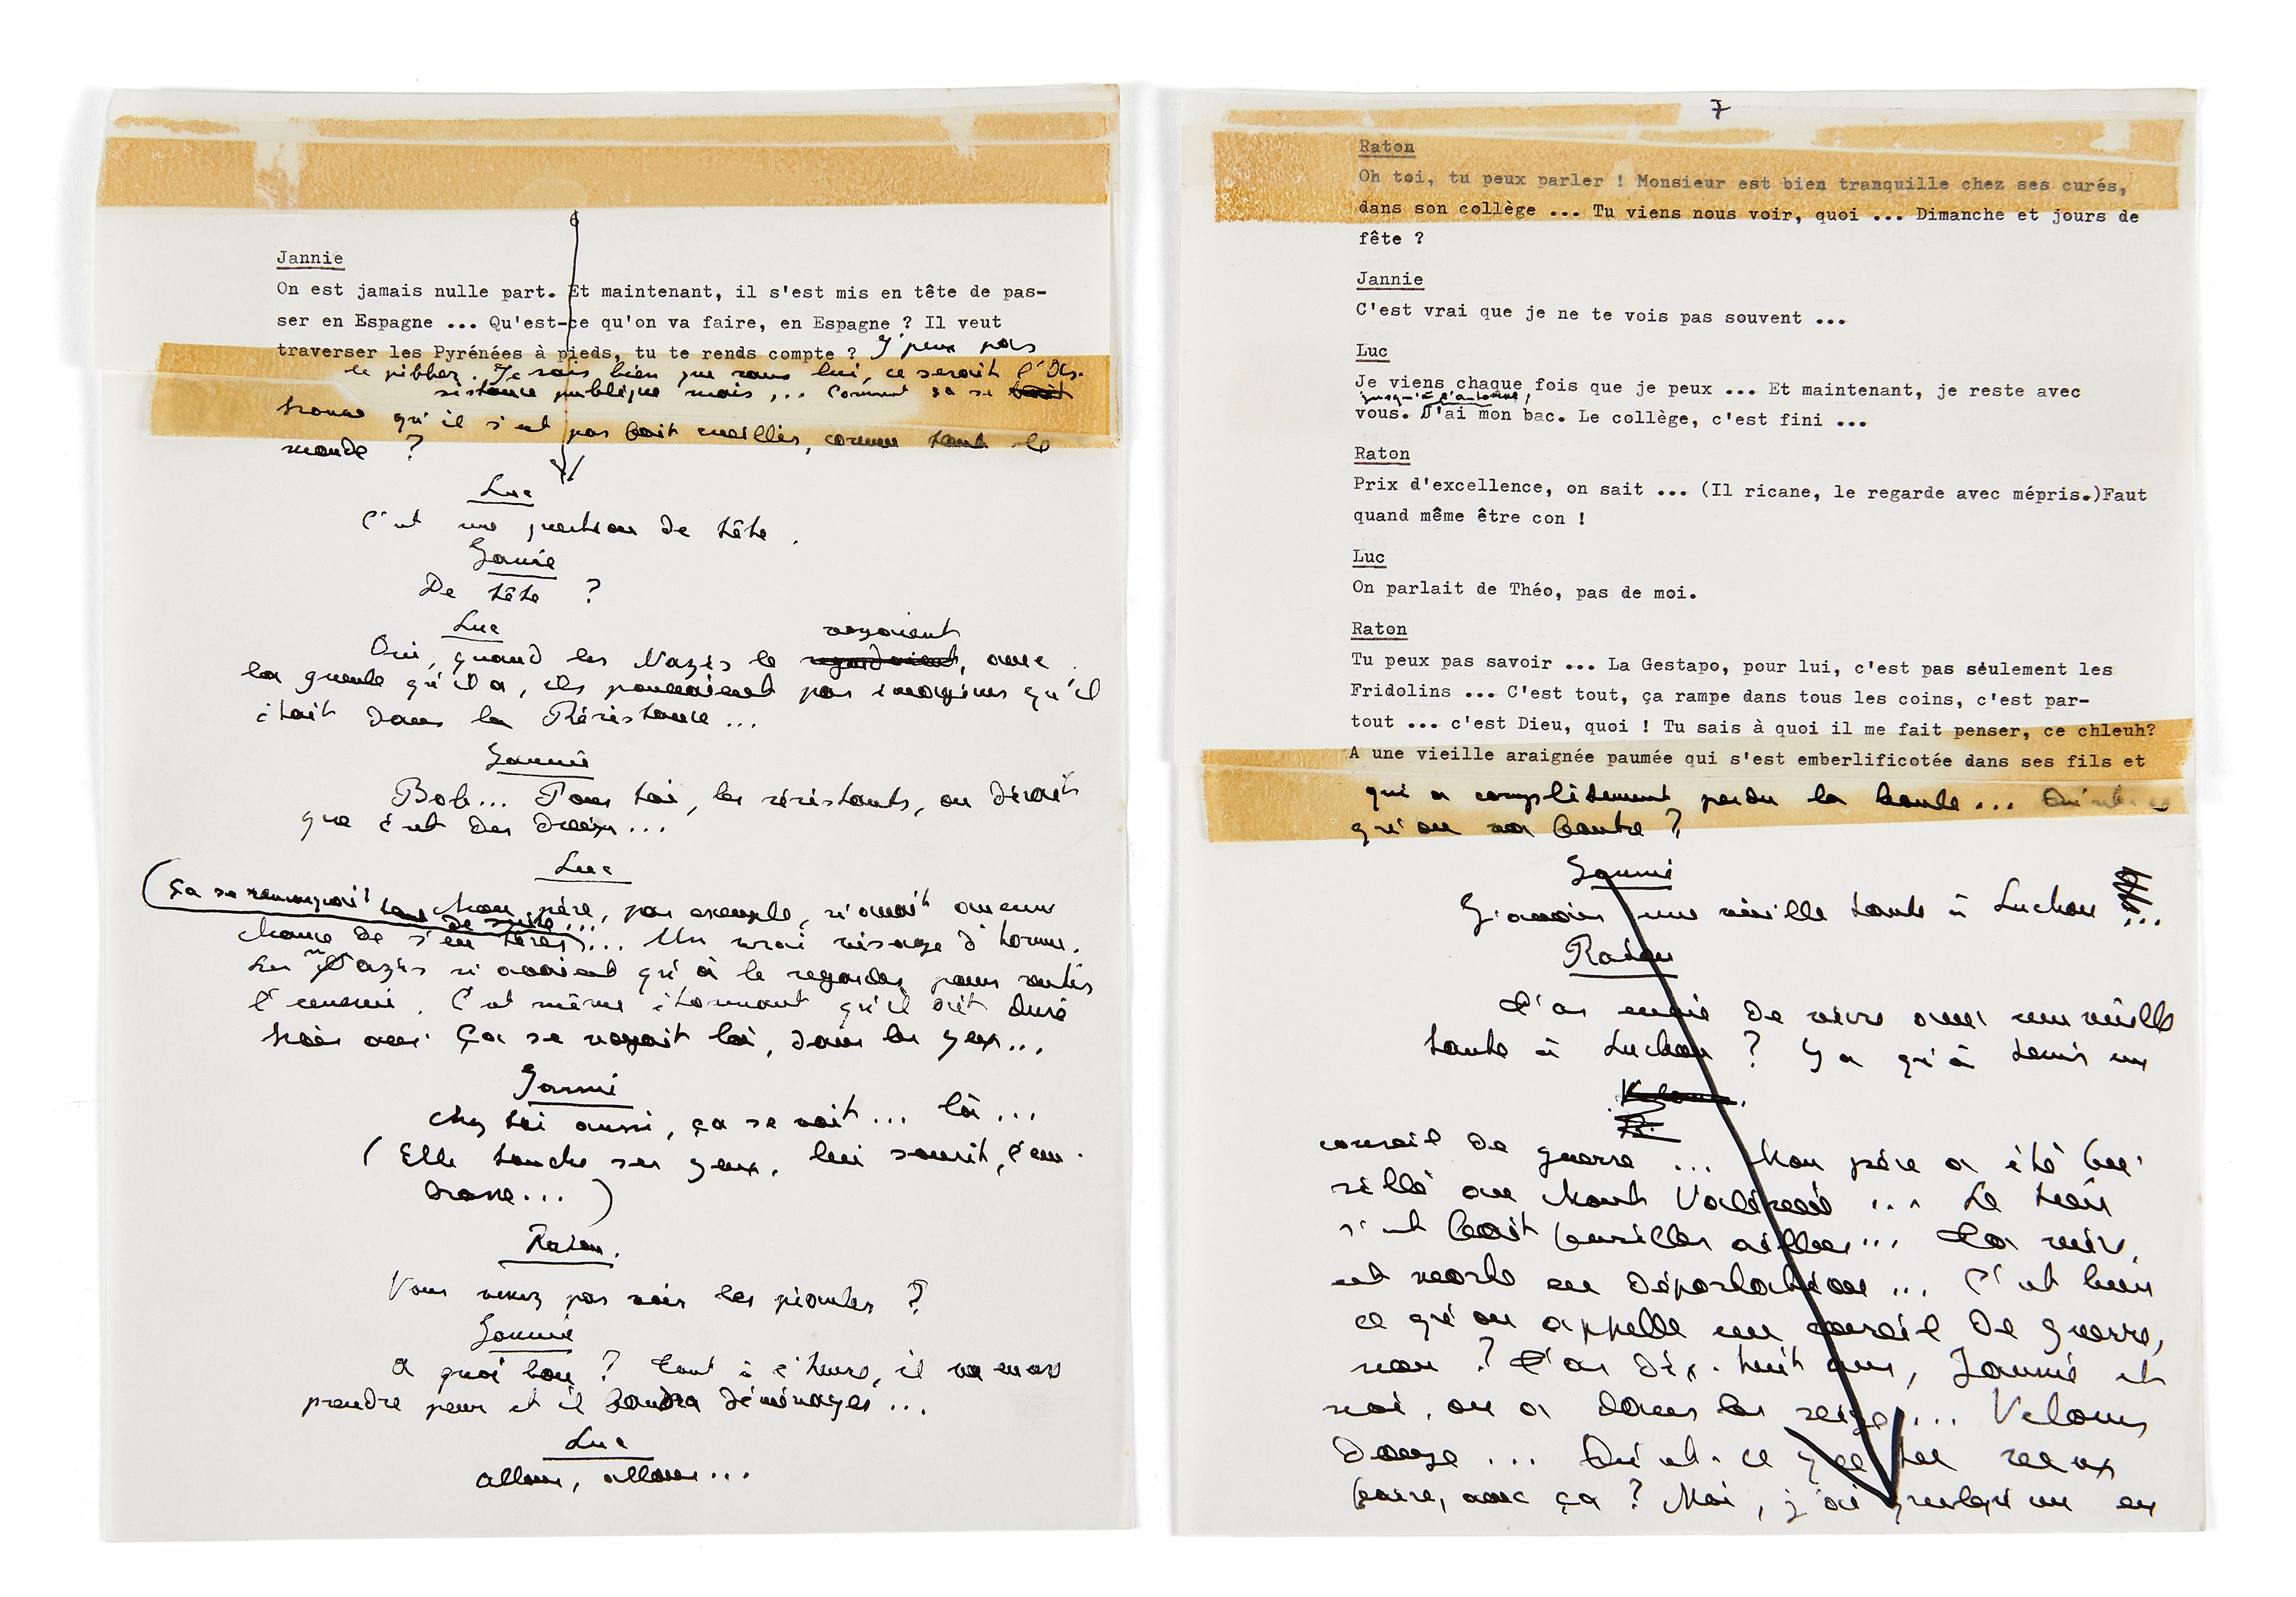 Jannie
On est jamais nulle part. Et maintenant, il s'est mis en tête de pas-
ser en Espagne ... Qu'est-ce qu'on va faire, en Espagne ? Il veut
traverser les Pyrénées à pieds, tu te rends compte ? J'peux pas
le . Je sais bien que sans lui, ce serait l'As-
sistance publique mais ... Comment ça se fait
qu'il s'est pas fait cueillir, comme tout le
monde ?
Luc
C'est une question de tête.
Jannie
De tête ?
Luc
voyaient
Oui, quand les Nazis le regardaient, avec
la gueule qu'il a, ils pouvaient pas imaginer qu'il
était dans la Résistance ...
Jannie
Bof... Pour toi, les résistants, on dirait
que c'est des dieux ...
Luc
(ça se remarquait tout de suite ...
Mon père, par exemple, n'avait aucune
chance de s'en tirer) ... Un vrai visage d'homme.
Les Nazis n'avaient qu'à le regarder pour sentir
l'ennemi. C'est même étonnant qu'il ait duré
trois ans. Ça se voyait là, dans les yeux ...
Jannie
Chez toi aussi, ça se voit ... là ...
(Elle touche ses yeux, lui sourit, l'em-
brasse ...)
Raton.
Vous venez pas voir les piaules ?
Jannie
A quoi bon ? Tout à l'heure, il va encore
prendre peur et il faudra déménager ...
Luc
allons, allons ...
7
Raton
Oh toi, tu peux parler ! Monsieur est bien tranquille chez ses curés,
dans son collège ... Tu viens nous voir, quoi ... Dimanche et jours de
fête ?
Jannie
C'est vrai que je ne te vois pas souvent ...
Luc
Je viens chaque fois que je peux ... Et maintenant, je reste avec
jusqu'à l'automne,
vous. J'ai mon bac. Le collège, c'est fini ...
Raton
Prix d'excellence, on sait ... (Il ricane, le regarde avec mépris.)Faut
quand même être con !
Luc
On parlait de Théo, pas de moi.
Raton
Tu peux pas savoir ... La Gestapo, pour lui, c'est pas seulement les
Fridolins ... C'est tout, ça rampe dans tous les coins, c'est par-
tout ... c'est Dieu, quoi ! Tu sais à quoi il me fait penser, ce chleuh?
A une vieille araignée paumée qui s'est emberlificotée dans ses fils et
qui a complètement perdu la boule ... Qu'est-ce
qu'on va foutre ?
Jannie
J'avais une vieille tante à Luchon ...
Raton
T'as envie de vivre avec une vieille
tante à Luchon ? Y a qu'à tenir un
Velours.
R.
conseil de guerre ... Mon père a été fu-
sillé au Mont Valérien ... Le tien
s'est fait fusiller ailleurs ... La mère
est morte en déportation ... C'est bien
ce qu'on appelle un conseil de guerre,
non ? T'as dix-huit ans, Jannie et
moi, on a dans les seize ... Velours
douze ... Qu'est-ce que tu veux
faire, avec ça ? Moi, j'ai quelqu'un en